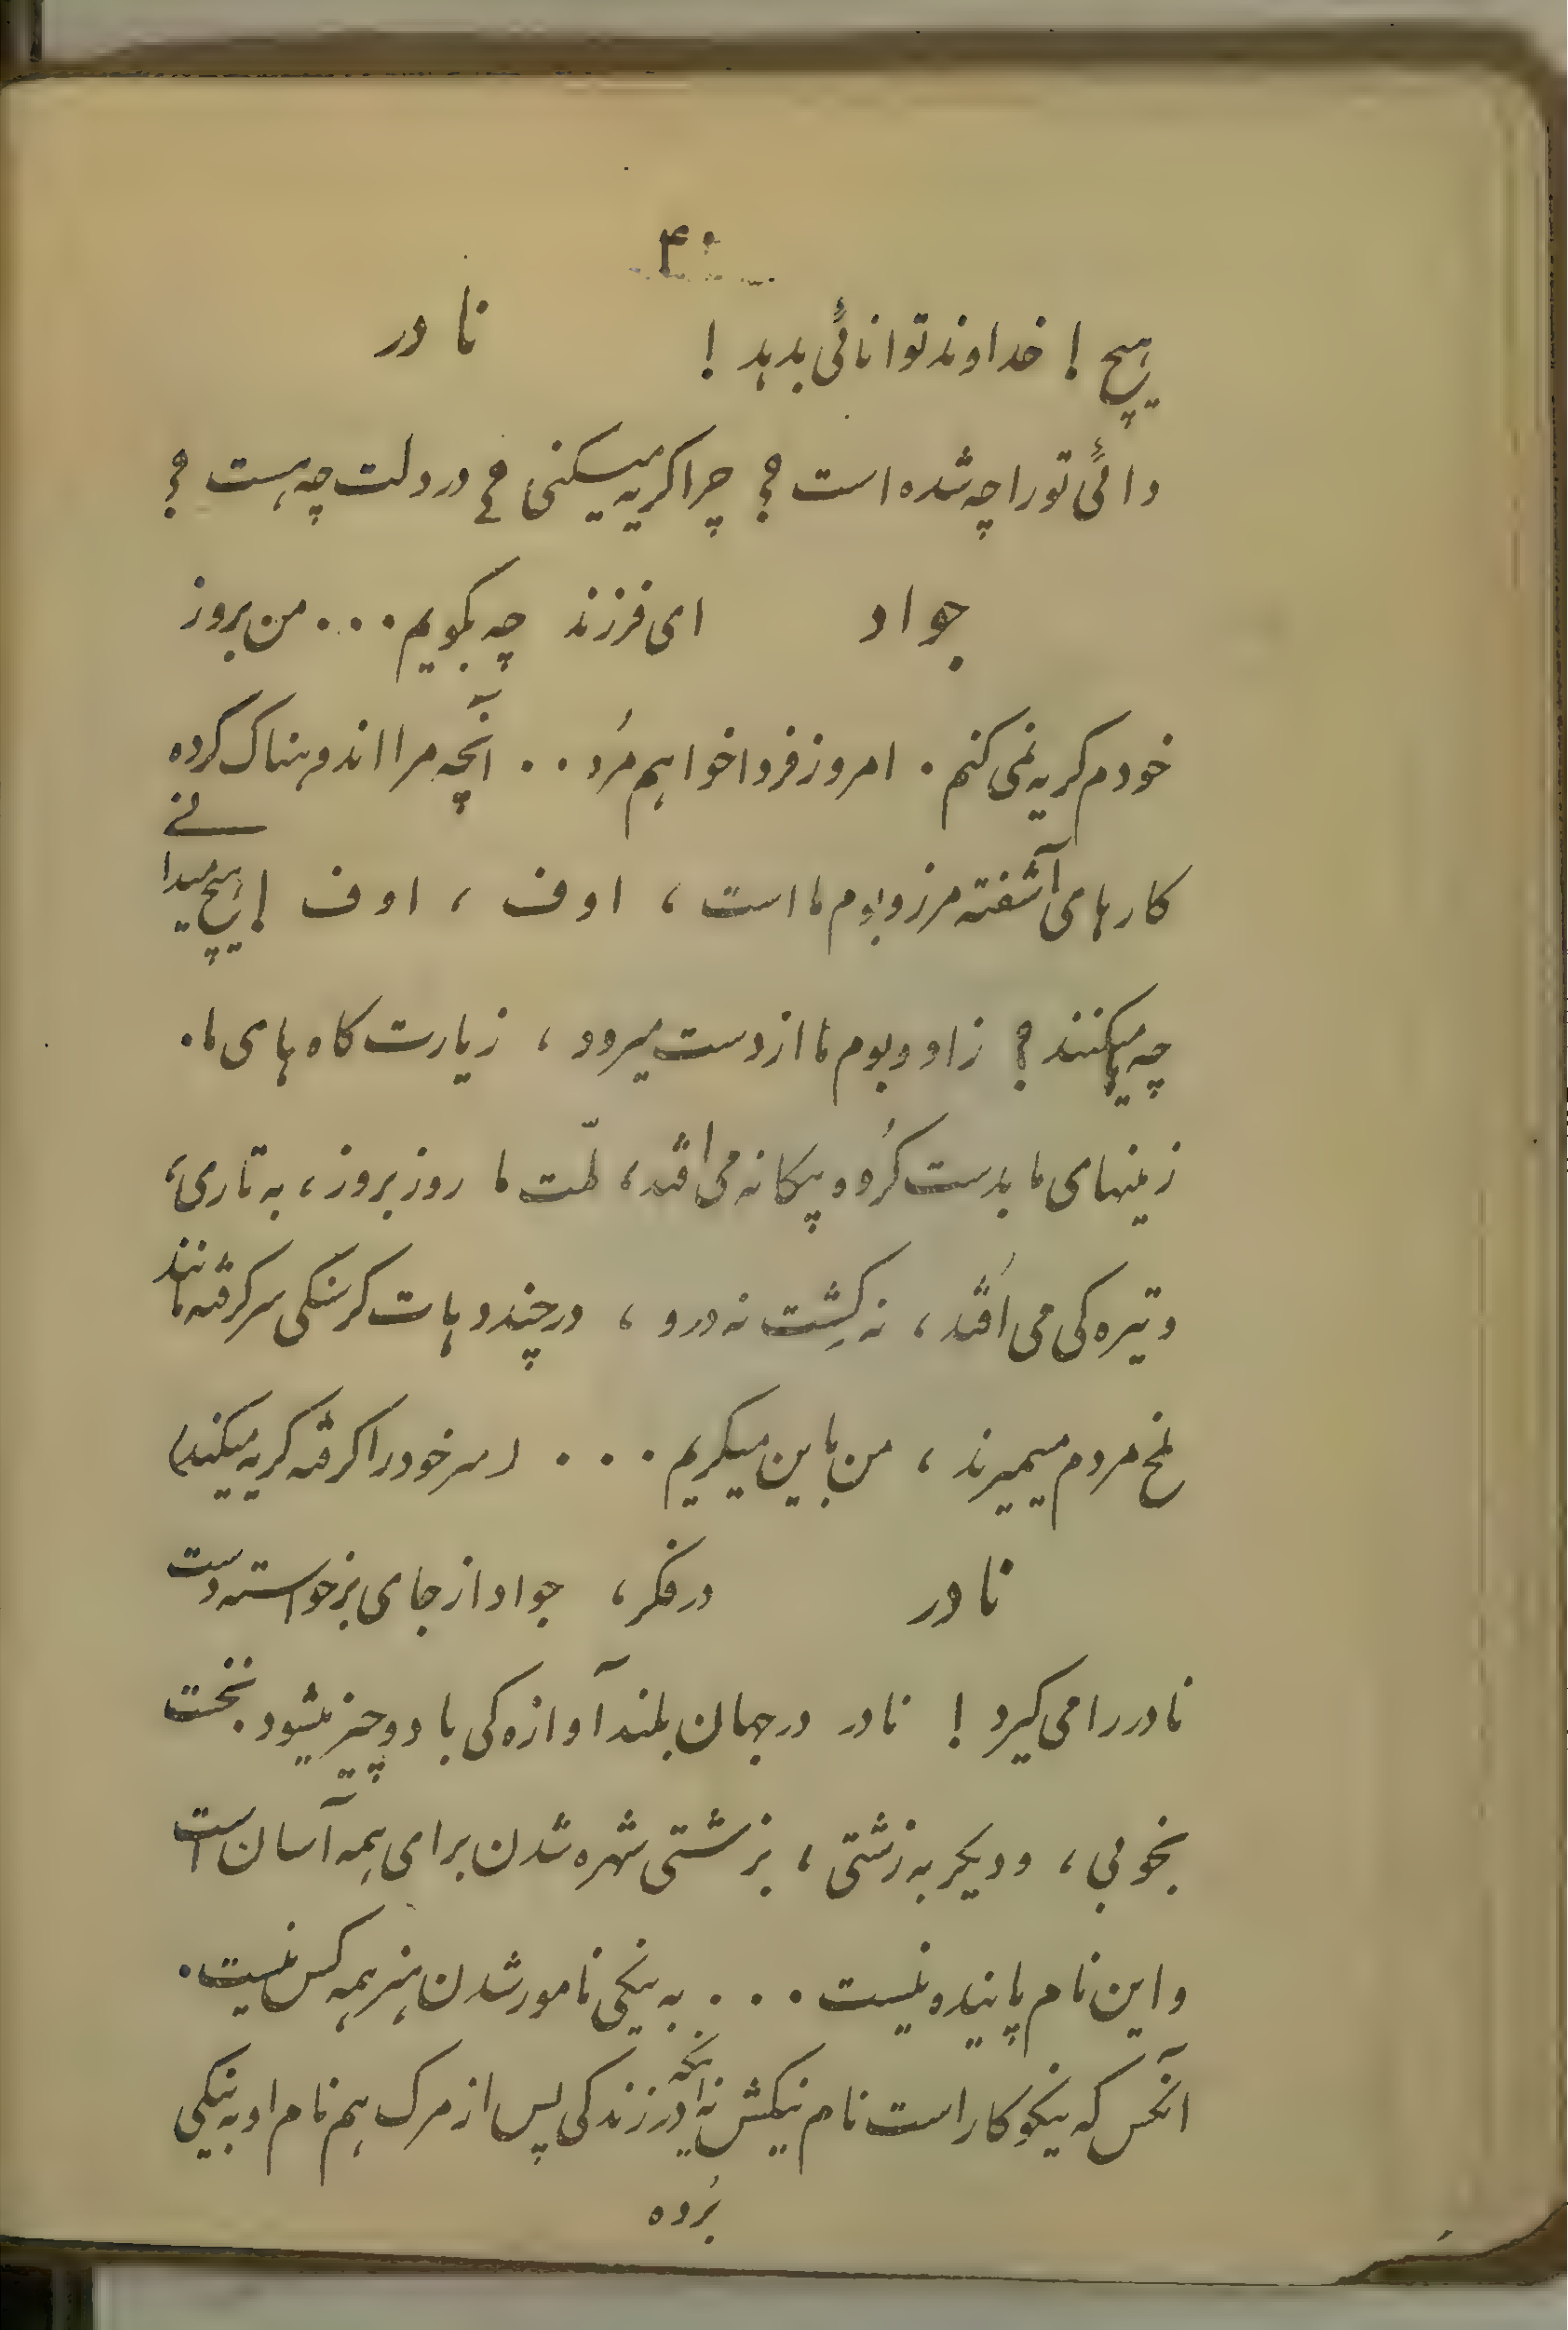 ۴۰
هیچ ! خداوند توانائی بدهد ! نادر
دائی تورا چه شده است ؟ چرا کریه میکنی ؟ دردلت چه هست ؟
جواد ای فرزند چه بکویم ۰۰۰ من بروز
خودم کریه نمی کنم . امروز فردا خواهم مُرد ۰۰ آنچه مرا اندوهناک کرده
کارهای آشفته مرز و بوم ما است ، اوف ، اوف ! هیچ میدانی
چه میکنند ؟ زاد و بوم ما از دست میرود ، زیارت کاه های ما .
زمینهای ما بدست کُروه بیکانه می افتد ، ملّت ما روز بروز ، به تاری ،
و تیره کی می اُفتد ، نه کِشت نه درو ، در چند دهات کرسنکی سر کرفته مانند
ملخ مردم میمیرند ، من باین میکریم ۰۰۰ ( سر خود را کرفته کریه میکند )
نادر در فکر ، جواد از جای برخواسته دست
نادر را می کیرد ! نادر در جهان بلند آوازه کی با دو چیز میشود نخست
بخوبی ، و دیکر به زشتی ، بزشتی شهره شدن برای همه آسان است
و این نام پاینده نیست ۰۰۰ به نیکی نامور شدن هنر همه کس نیست .
آنکس که نیکوکار است نام نیکش نه اینکه در زندکی پس از مرک هم نام او به نیکی
بُرده